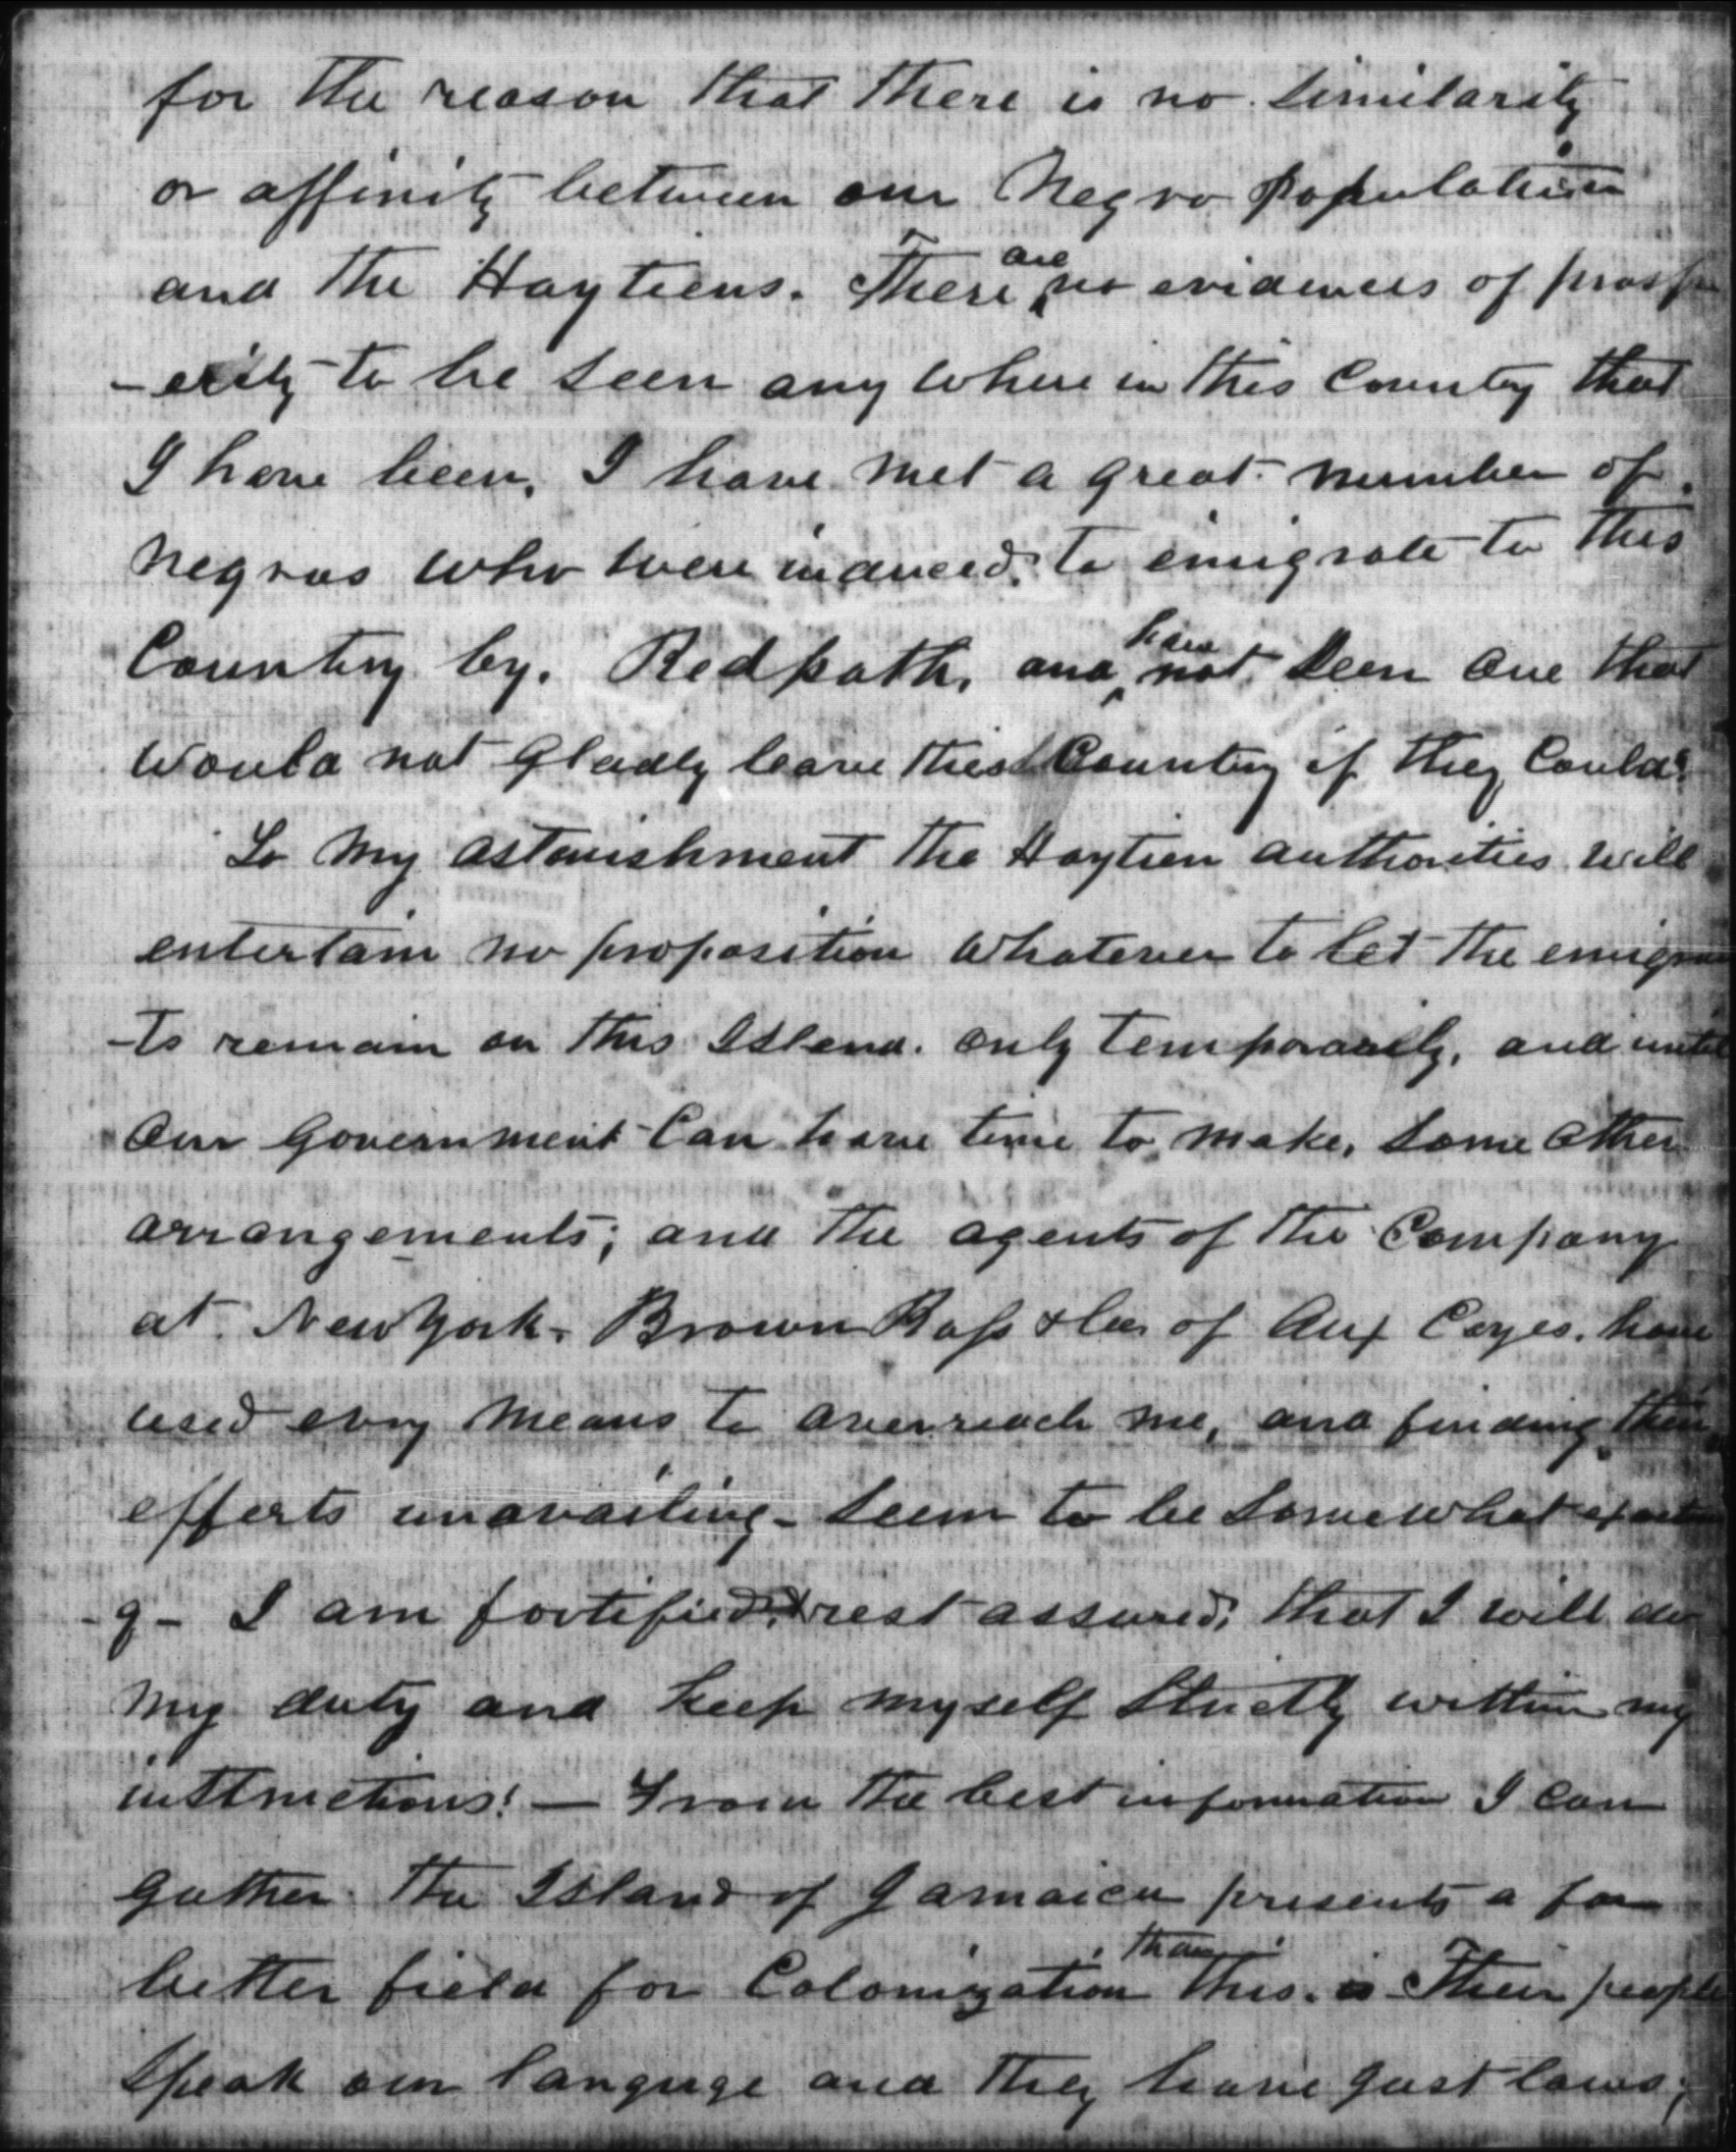 for the reason that there is no similarity
or affinity between our Negro population
and the Haytiens. There are no evidences of prosp
-erity to be seen any where in this Country that
I have been. I have met a great number of
negros who were induced to emigrate to this
Country by. Redpath, and have not seen one that
would not gladly leave this Country if they could.
To my astonishment the Haytien authorities will
entertain no proposition whatever to let the emigran
-ts remain on this Island. only temporarily, and until
our Government can have time to make, some other
arrangements; and the agents of the Company
at New York. Brown Bass & Co of Aux Cayes. have
used every means to overreach me, and finding their
efforts unavailing - seem to be somewhat
-g- I am fortified, rest assured, that I will do
my duty and keep myself strictly within my
instructions! — From the best information I can
gather the Island of Jamaica presents a far
better field for Colonization than this. Their people
speak our languge and they have just laws;